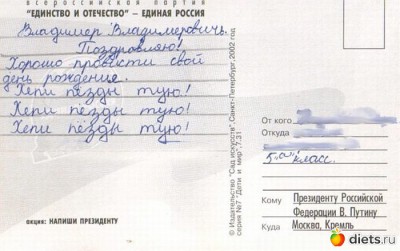 всероссийской партии
"ЕДИНСТВО И ОТЕЧЕСТВО" – ЕДИНАЯ РОССИЯ
Владимер Владимеровичь.
Поздровляю!
Хорошо провести свой
день рождение.
Хепи пёзды тую!
Хепи пёзды тую!
Хепи пёзды тую!
акция: НАПИШИ ПРЕЗИДЕНТУ
© Издательство "Сад искусств", Санкт-Петербург, 2002 год
серия №7 "Дети и мир", 7.31
От кого
Откуда
класс.
Кому Президенту Российской
Федерации В. Путину
Куда Москва, Кремль
diets.ru